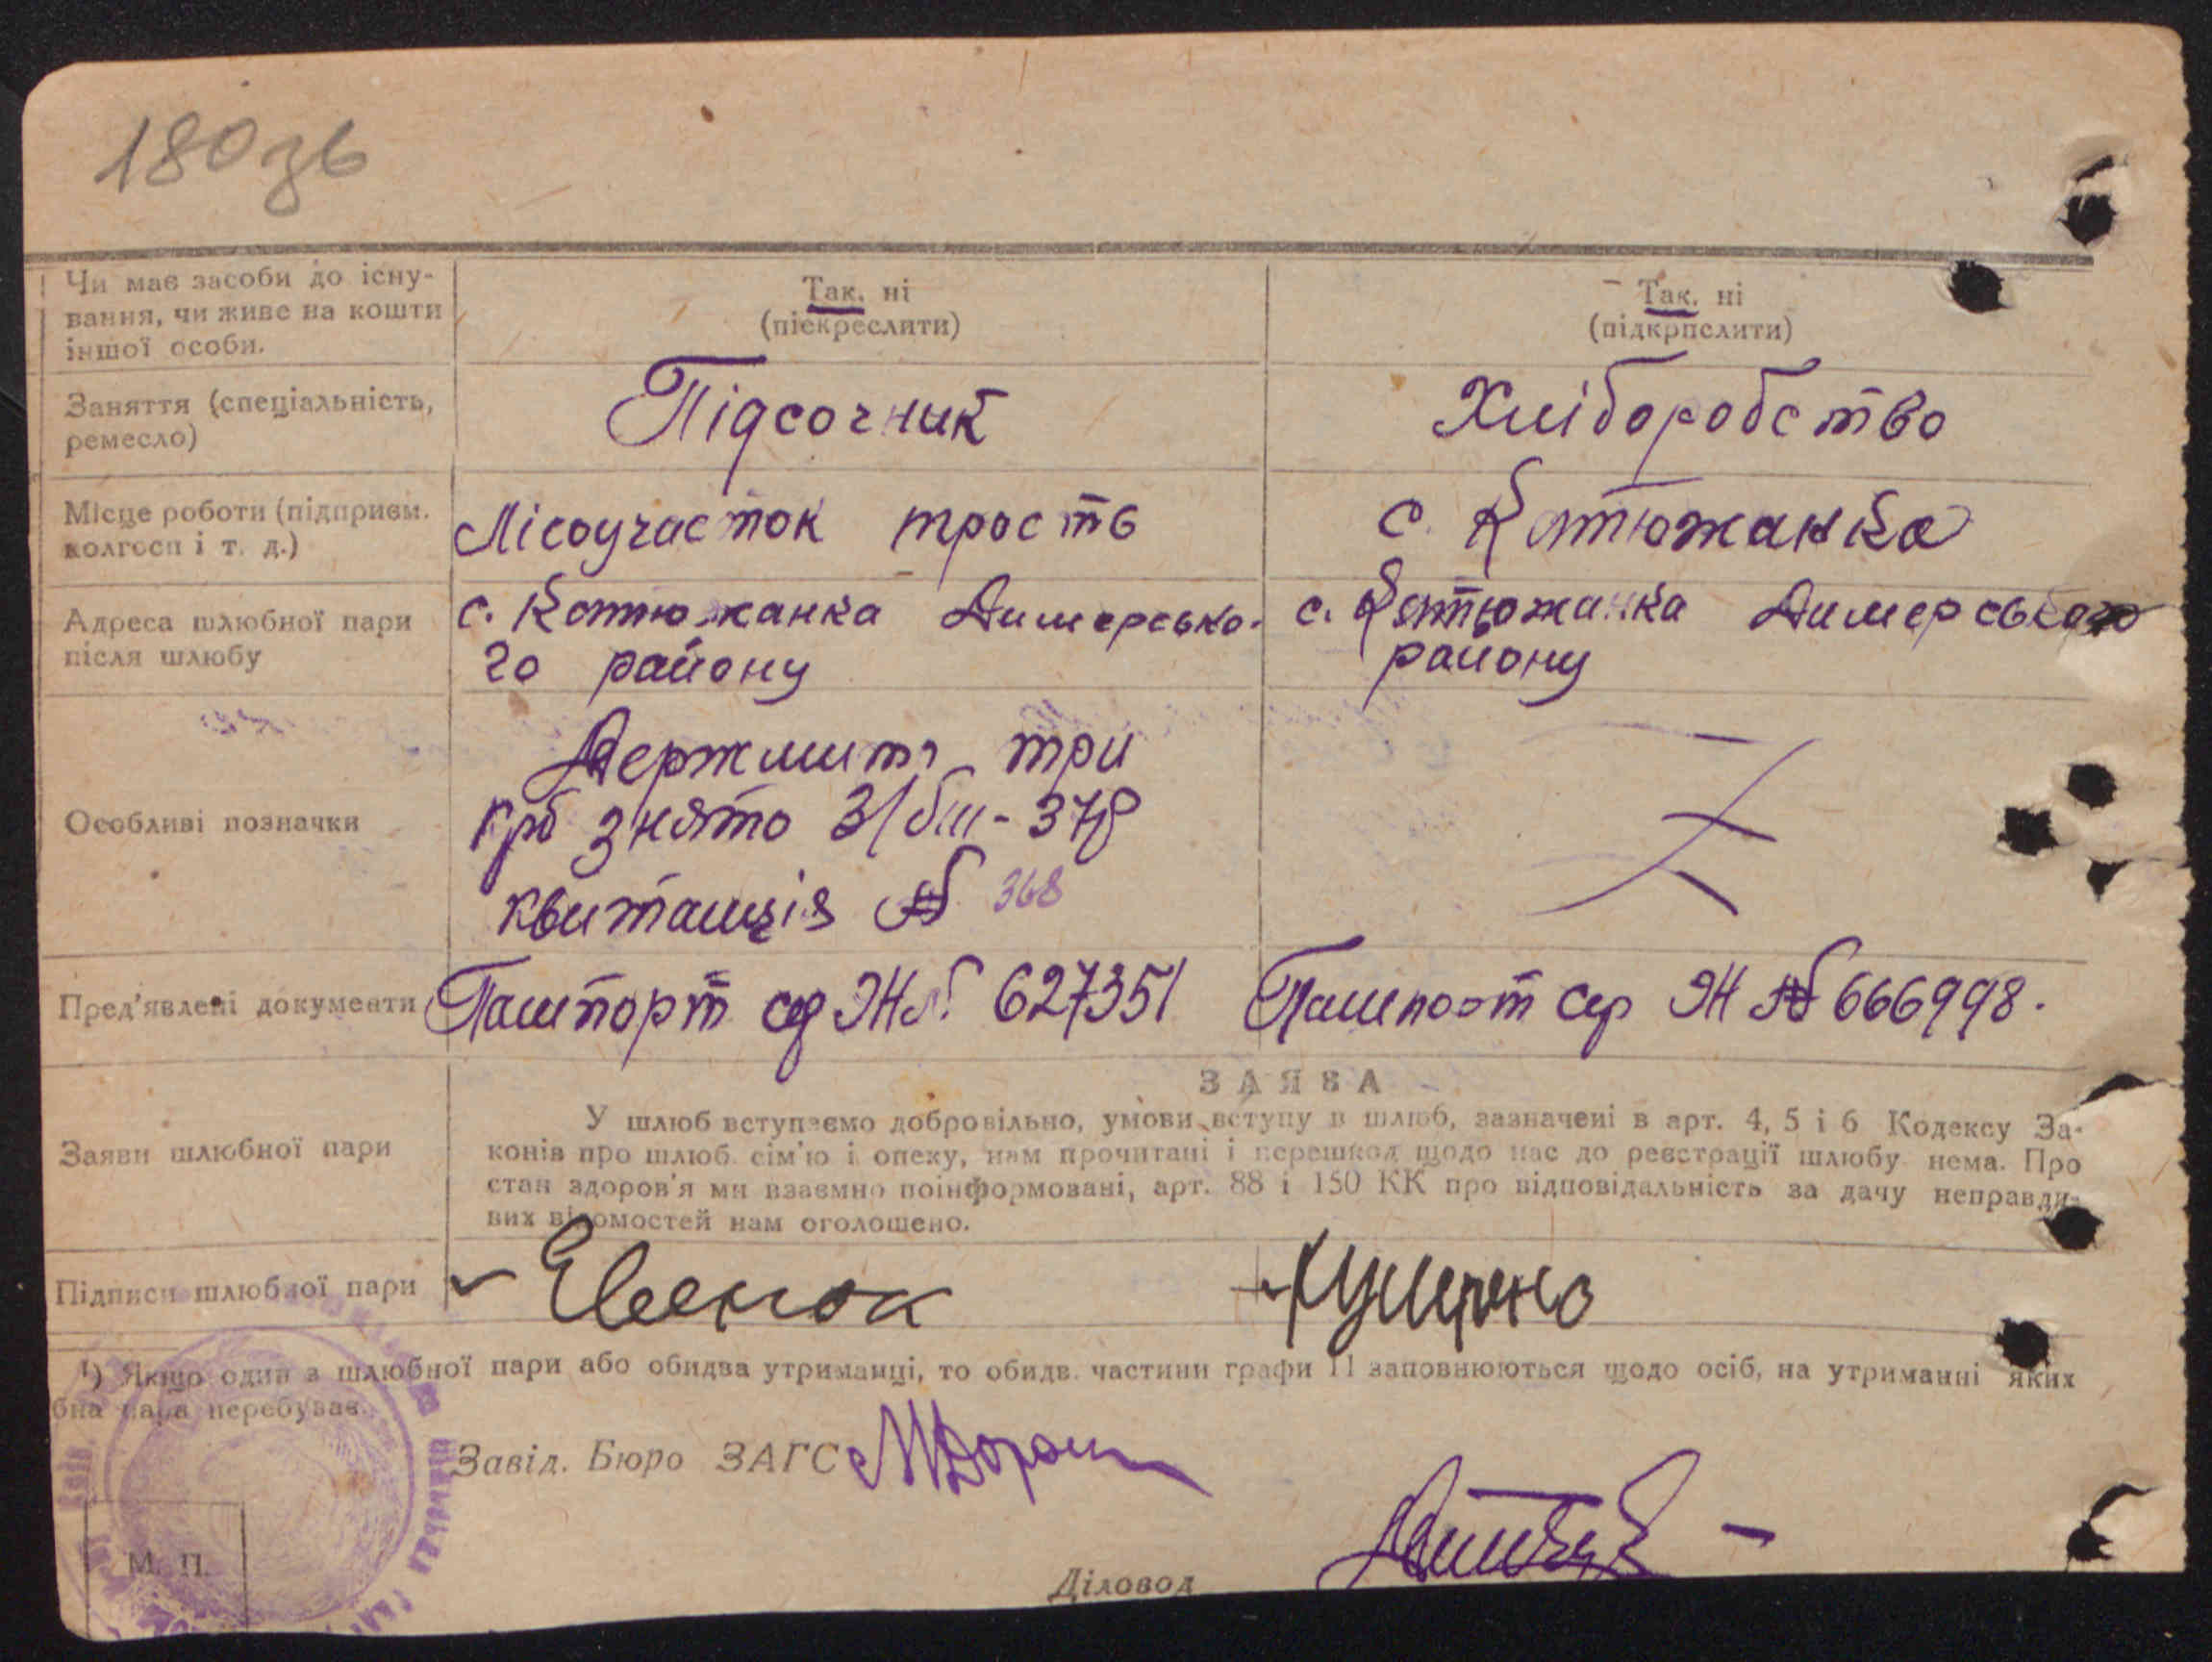 180зв
Чи має засоби до існу-
вання, чи живе на кошти
іншої особи.
Так, ні
(піекреслити)
Так, ні
(підкрпслити)
Заняття (спеціальність,
ремесло)
Підсочник
Хліборобство
Місце роботи (підприєм.
колгосп і т. д.)
Лісоучасток трость
с. Катюжанка
Адреса шлюбної пари
після шлюбу
с. Катюжанка Димерсько-
го району
с. Катюжанка Димерського
району
Особливі позначки
Держмито три
крб знято 31/ііі-37р
квитанція № 368
Пред'явлені документи
Пашпорт ср ЭЖ № 627351
Пашпорт сер ЭЖ № 666998.
ЗАЯВА
Заяви шлюбної пари
У шлюб вступаємо добровільно, умови вступу в шлюб, зазначені в арт. 4, 5 і 6 Кодексу За-
конів про шлюб. сім'ю і опеку, нам прочитані і перешкод щодо нас до реєстрації шлюбу нема. Про
стан здоров'я ми взаємно поінформовані, арт. 88 і 150 КК про відповідальність за дачу неправди-
вих відомостей нам оголошено.
Підписи шлюбної пари
Євенок
Кушерно
¹) Якщо один з шлюбної пари або обидва утриманці, то обидв. частини графи 11 заповнюються щодо осіб, на утриманні яких
бна пара перебуває.
Завід. Бюро ЗАГС
М. П.
Діловод